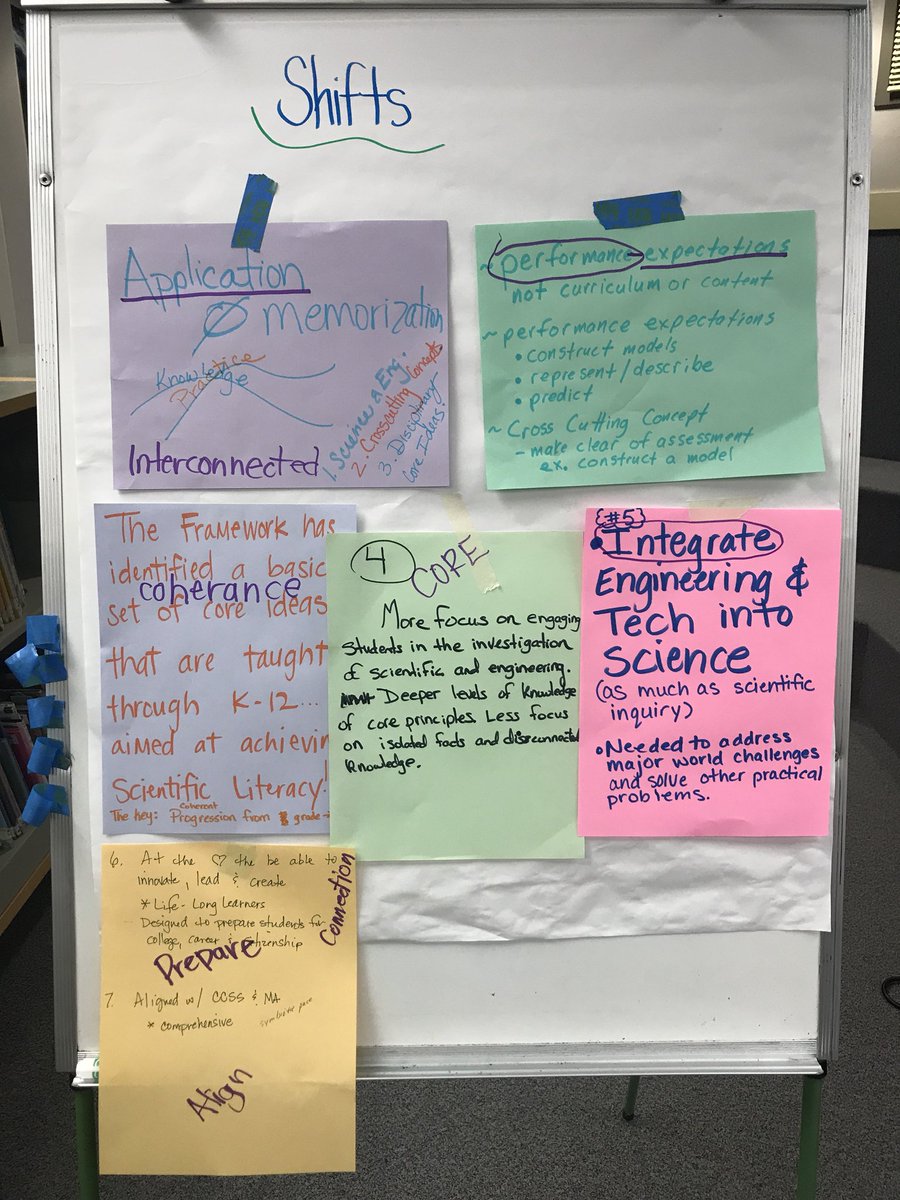 Shifts
Application
Ø memorization
Knowledge
Practice
Interconnected
1. Science & Eng.
2. Crosscutting Concepts
3. Disciplinary
Core Ideas
~ performance expectations
not curriculum or content
~ performance expectations
• construct models
• represent/describe
• predict
~ Cross Cutting Concept
- make clear of assessment
ex. construct a model
The Framework has
identified a basic
coherance
set of core ideas
that are taught
through K-12...
aimed at achievin
Scientific Literacy!
coherent
The key: Progression from grade →
4
CORE
More focus on engaging
students in the investigation
of scientific and engineering.
Deeper levels of knowledge
of core principles. Less focus
on isolated facts and disconnected
knowledge.
{#5}
• Integrate
Engineering &
Tech into
Science
(as much as scientific
inquiry)
• Needed to address
major world challenges
and solve other practical
problems.
6. At the ♡ the be able to
innovate, lead & create
* Life-Long Learners
- Designed to prepare students for
college, career & citizenship
Connection
Prepare
7. Aligned w/ CCSS & MA
* comprehensive
Align